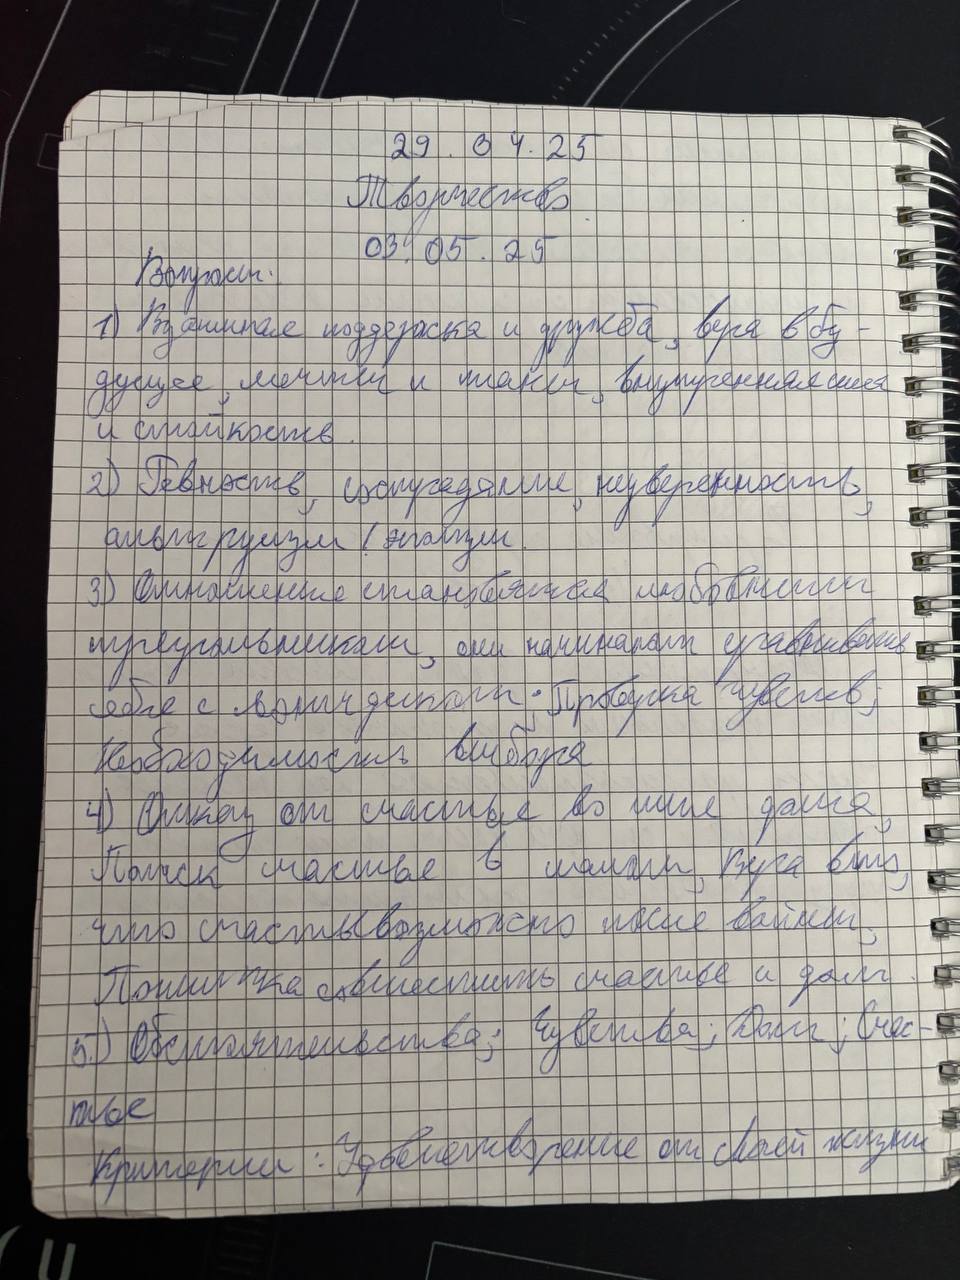 29.04.25
Творчество
03.05.25
Вопросы:
1) Взаимная поддержка и дружба, вера в бу-
дущее, мечты и планы, внутренняя сила
и стойкость.
2) Ревность, сострадание, неуверенность,
альтруизм / эгоизм.
3) Отношение становятся любовным
треугольником, они начинают сравнивать
себя с ; Проверка чувств;
Необходимость выбора
4) Отказ от счастье во имя долга,
Поиск счастье в малом, Вера в то,
что счастье возможно после войны,
Попытка совместить счастье и долг.
5.) Обстоятельства; Чувства; Долг; Счас-
тье
Критерии: Удовлетворение от своей жизни